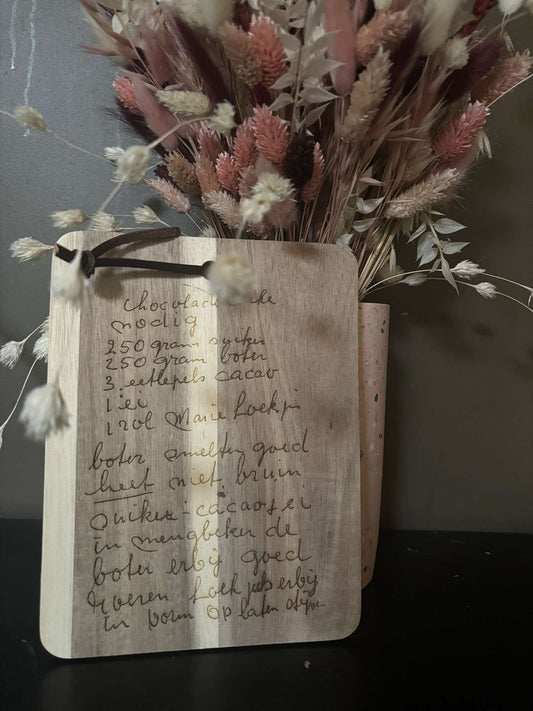 chocolade
nodig
250 gram suiker
250 gram boter
3 eetlepels cacao
1 ei
1 rol Marie koekjes
boter smelten goed
heet niet bruin
suiker - cacao + ei
in mengbeker de
boter erbij goed
roeren koekjes erbij
in vorm op laten stijven